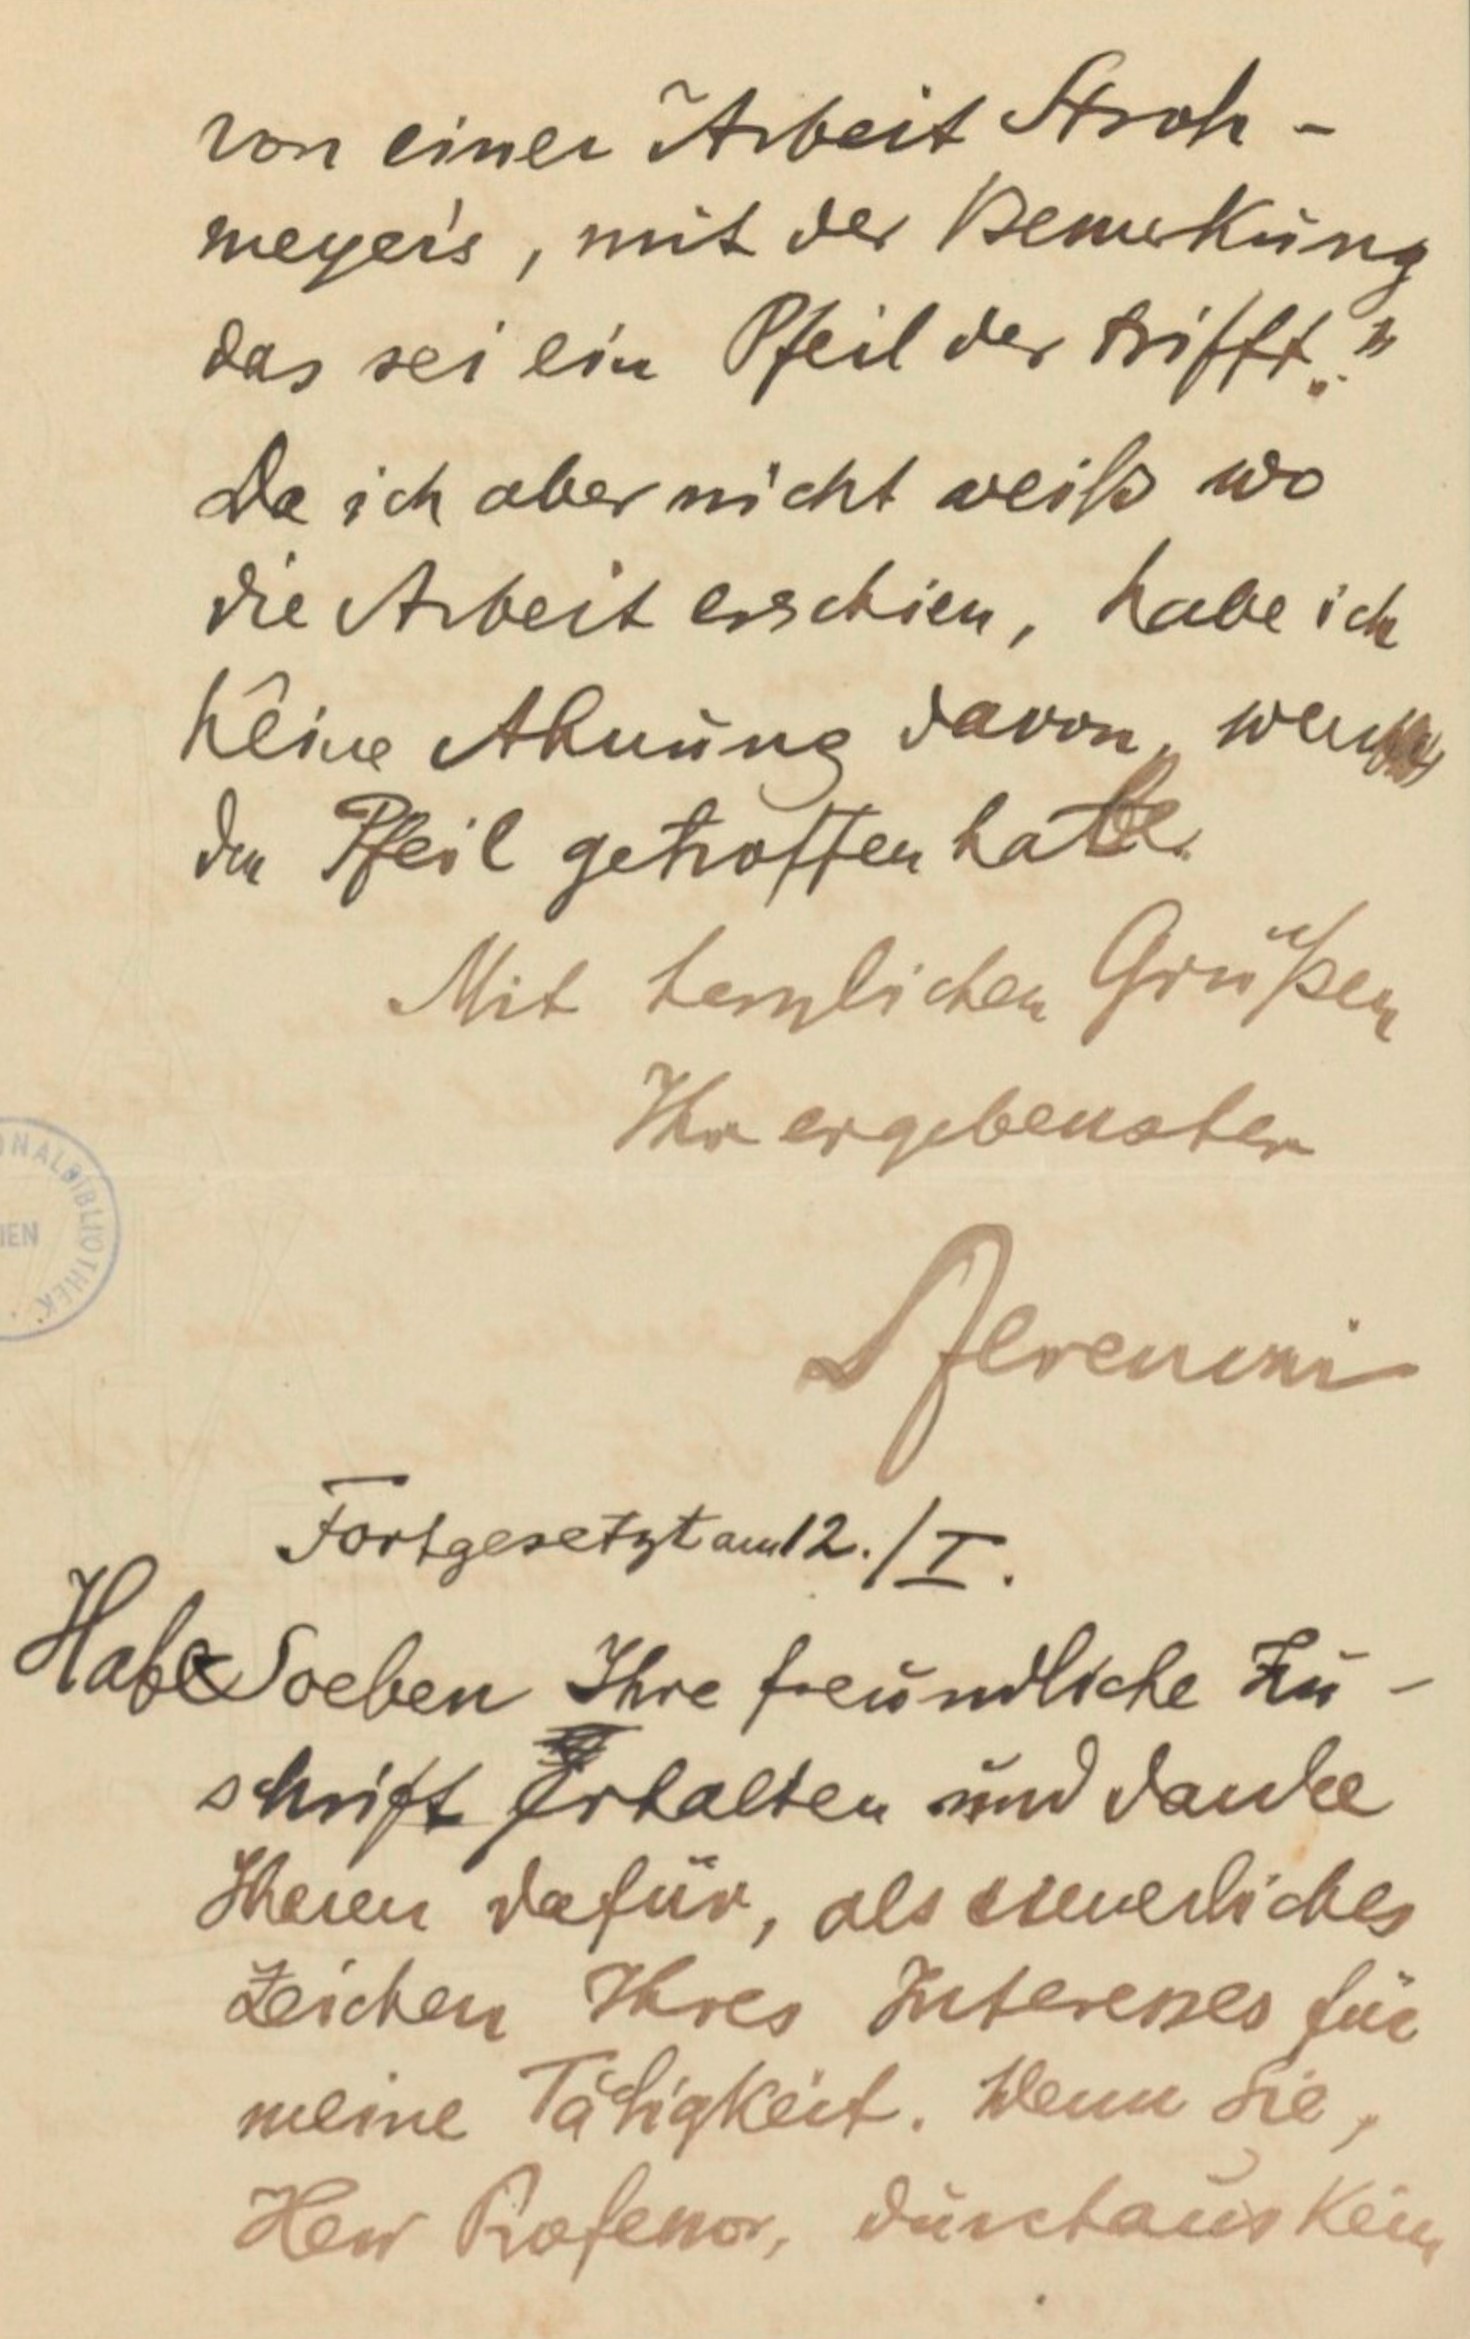 von einer Arbeit Stroh-
meyer's, mit der Bemerkung
das sei ein Pfeil der trifft."
Da ich aber nicht weiß wo
die Arbeit erschien, habe ich
keine Ahnung davon, wen
der Pfeil getroffen hatte.
Mit herzlichen Grüßen
Ihr ergebenster
Ferenczi
Fortgesetzt am 12./I.
Habe Soeben Ihre freundliche Zu-
schrift erhalten und danke
Ihnen dafür, als neuerliches
Zeichen Ihres Interesses für
meine Tätigkeit. Wenn Sie,
Herr Professor, durchaus kein
ONALBIBLIOTHEK
IEN